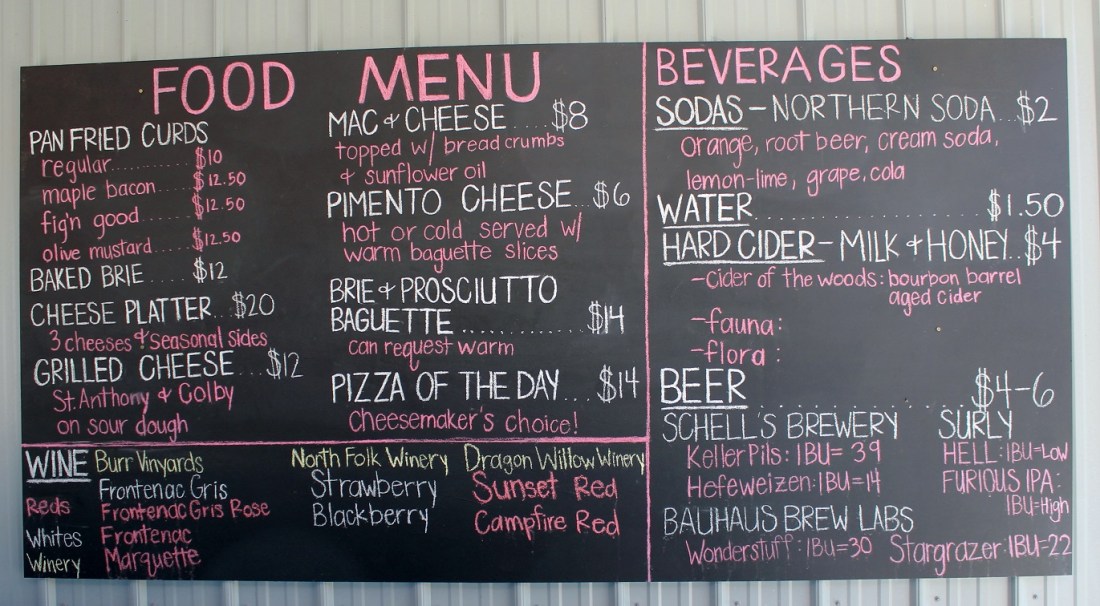 FOOD MENU
PAN FRIED CURDS
regular.......... $10
maple bacon..... $12.50
fig'n good...... $12.50
olive mustard..... $12.50
BAKED BRIE ... $12
CHEESE PLATTER.. $20
3 cheeses & Seasonal sides
GRILLED CHEESE ... $12
St. Anthony & Colby
on sour dough
MAC & CHEESE .... $8
topped w/ bread crumbs
& sunflower oil
PIMENTO CHEESE... $6
hot or cold served w/
warm baguette slices
BRIE & PROSCIUTTO
BAGUETTE ............. $14
can request warm
PIZZA OF THE DAY... $14
Cheesemaker's choice!
BEVERAGES
SODAS - NORTHERN SODA...$2
orange, root beer, cream soda,
lemon-lime, grape, cola
WATER.................... $1.50
HARD CIDER - MILK & HONEY..$4
-Cider of the woods: bourbon barrel
aged cider
-fauna:
-flora:
BEER .................. $4-6
SCHELL'S BREWERY
Keller Pils: IBU= 39
Hefeweizen: IBU=14
SURLY
HELL: IBU=Low
FURIOUS IPA:
IBU=High
BAUHAUS BREW LABS
Wonderstuff: IBU=30 Stargrazer: IBU=22
WINE
Reds
Whites
Winery
Burr Vinyards
Frontenac Gris
Frontenac Gris Rose
Frontenac
Marquette
North Folk Winery
Strawberry
Blackberry
Dragon Willow Winery
Sunset Red
Campfire Red